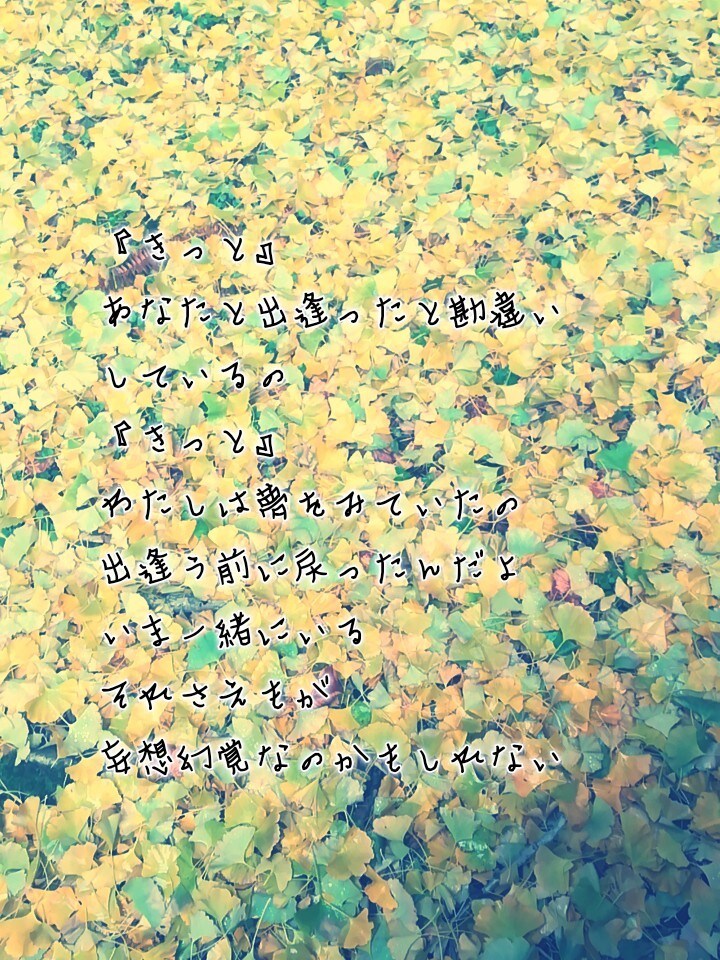 『きっと』
あなたと出逢ったと勘違い
しているの
『きっと』
わたしは夢をみていたの
出逢う前に戻ったんだよ
いま一緒にいる
それさえもが
妄想幻覚なのかもしれない